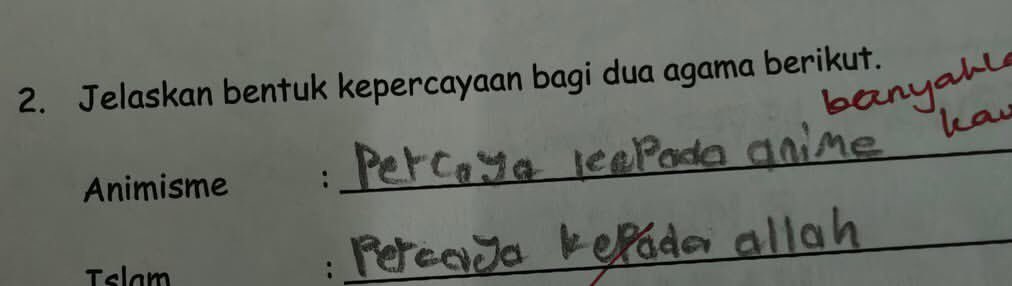 2. Jelaskan bentuk kepercayaan bagi dua agama berikut.
banyakla
kau
Animisme : Percaya kepada anime
Islam : Percaya kepada allah